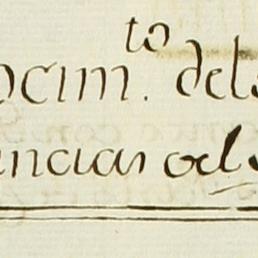 ocim.to del
uncias del